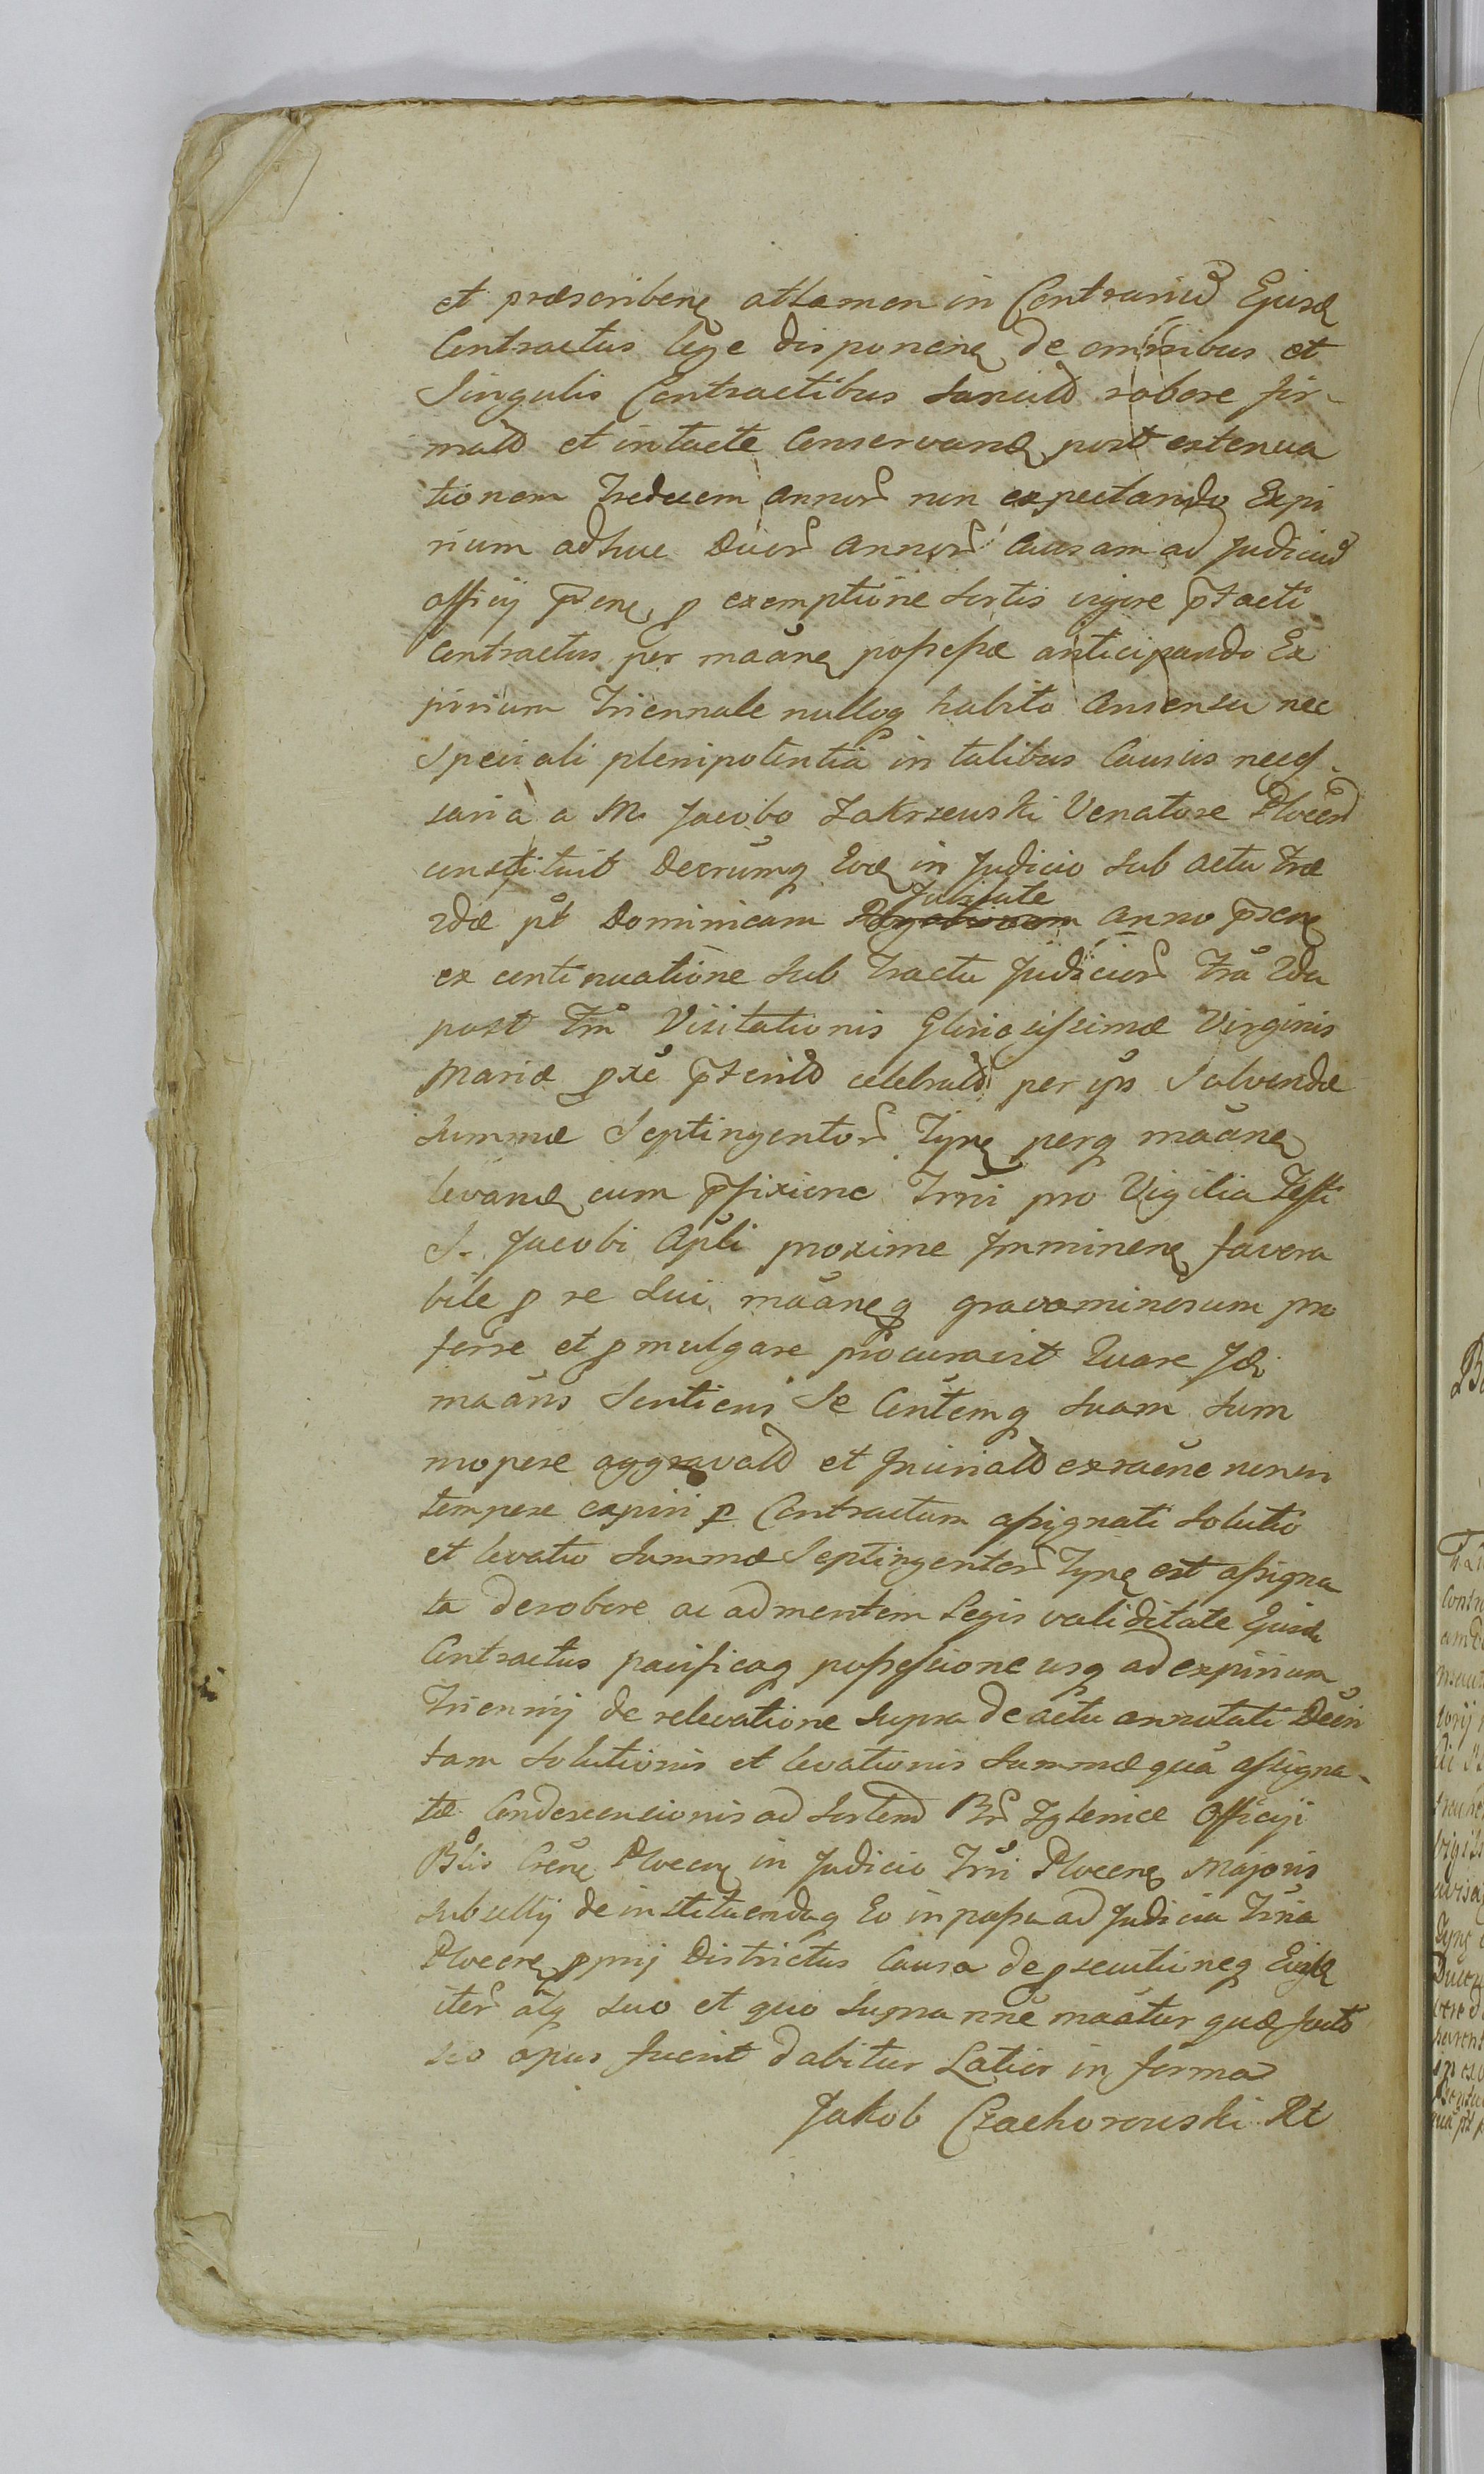 et præscribenꝫ attamen in Contrariuꝫ Ejusdꝫ
Contractus lege disponenꝫ de omnibus et
Singulis Contractibus sancitꝫ robore fir-
matꝫ et intacte Conservandꝫ post extenua
tionem Tredecem annorꝫ non expectando Expi
rium adhuc Duorꝫ annorꝫ Causam ad Judiciuꝫ
officij p̃senꝫ p exemptione Sortis vigore p̃tacti
Contractus per maãnꝫ possessæ anticipando Ex
pirium Triennale nulloq̃ habito Consensu nec
Speciali plenipotentia in talibus Causis necess
saria a M. Jacobo Zakrzewski Venatore Plocenꝫ
constituit Decrumq̃ in Judicio sub actu Fræ
2dæ pt̃ Dominicam Jubilate anno p̃senꝫ
ex continuatione sub tractu Judiciorꝫ Frã 2da
post Fm̃ Visitationis Gloriosissimæ Virginis
Mariæ pxẽ p̃teritꝫ celebratꝫ per ips Solvendæ
Summæ Septingentorꝫ Tynꝫ perq̃ maãnꝫ
levandꝫ cum p̃fixione Trñi pro Vigilia Festi
S. Jacobi Apl̃i proxime Imminenꝫ favora
bile p re sui maãneq̃ gravaminosum pro
ferre et pmulgare procuravit Quare Idꝫ
maãns Sentiens Se Contemq̃ suam sum
mopere aggravatꝫ et Injuriatꝫ exraẽne non in
tempore expiri p Contractum assignati Solutio
et levatio Summæ Septingentorꝫ Tynꝫ est assigna
ta de robore ac ad mentem Legis validitate Ejusdꝫ
Contractus pacificaq̃ possessione usq̃ ad expirium
Triennij de relevatione supra de actu annotati Decñi
tam Solutionis et levationis Summæ quã assigna-
tæ Condescensionis ad Sortem Bꝫ Zglenice Officiji
Cr̃enꝫ Plocenꝫ in Judicio Trñi Plocenꝫ Majoris
subsellij de instituendaq̃ Eo in passu ad Judicia Trñia
Plocenꝫ pprij Districtus Causa de psecutioneq̃ Ejusdꝫ
iterꝫ alq̃ suo et quo supra nnẽ maãtur quæ facto
suo opus fuerit dabitur Latior in forma
Jakob Czachorowski Rt